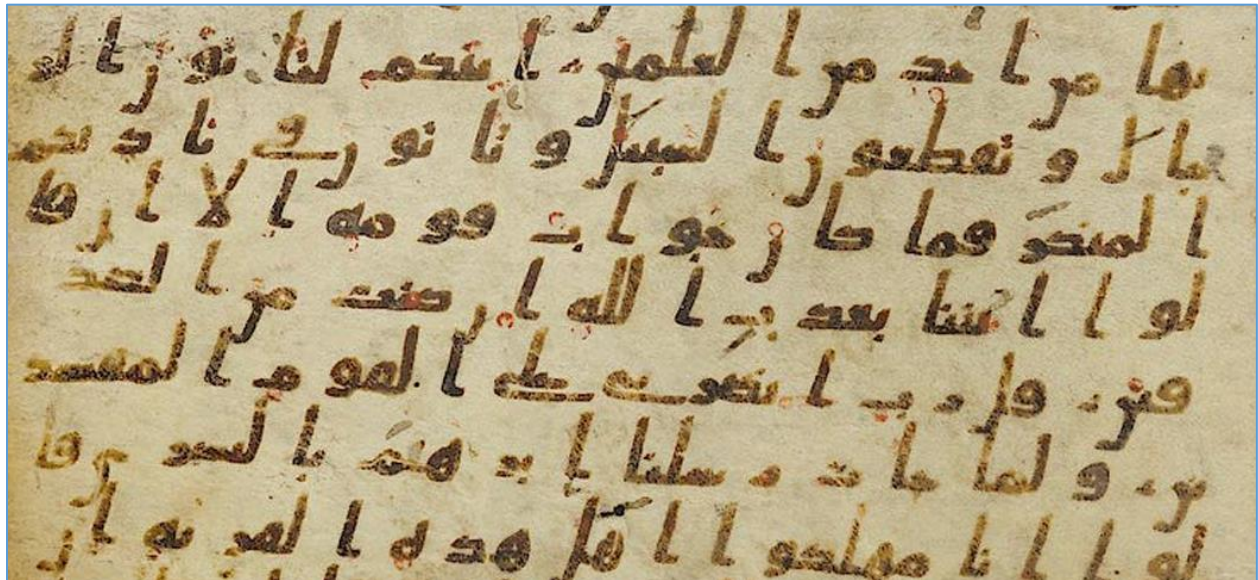 بها من احد من العلمين اينكم لتاتون الر
جال وتقطعون السبيل وتاتون في ناديكم
المنكر فما كان جواب قومه الا ان قا
لوا ائتنا بعذاب الله ان كنت من الصد
قين قال رب انصرني على القوم المفسد
ين ولما جات رسلنا ابرهيم بالبشرى قا
لوا انا مهلكوا اهل هذه القرية ان